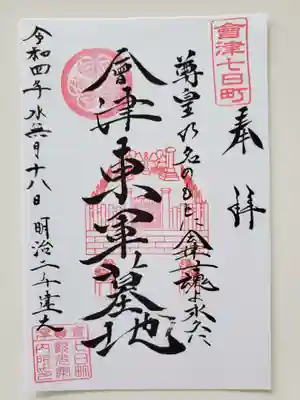 會津七日町
奉拝
尊皇の名のもとに會津士魂よ永久に
會津東軍墓地
令和四年水無月十八日 明治二年建之